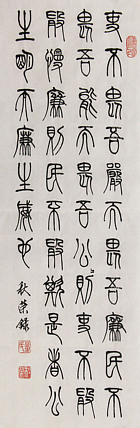 吏不畏吾嚴而畏吾廉不
吾能而畏吾公則吏不
慢廉則民不欺是者公
生明而廉生威也